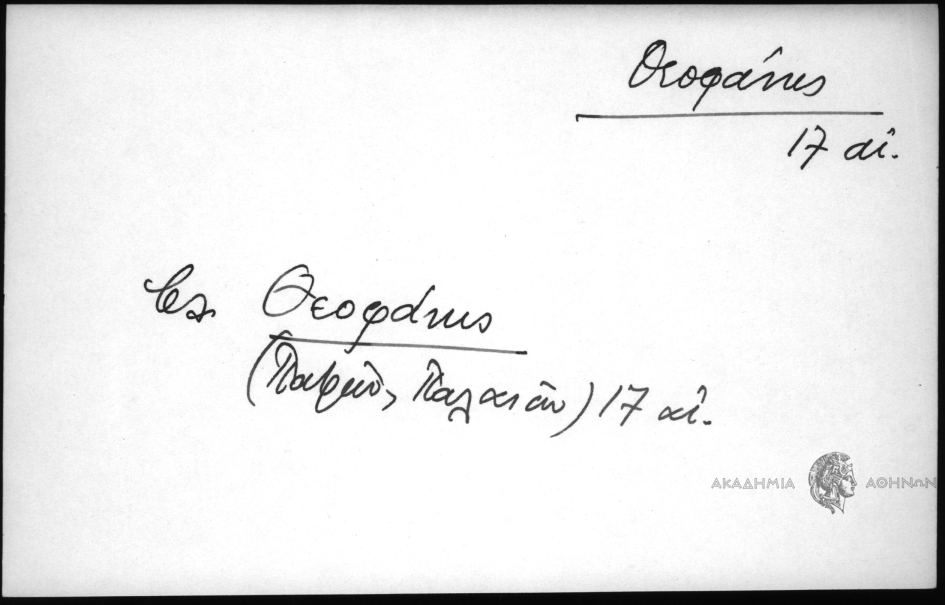 Θεοφάνης
17 αἰ.
βλ. Θεοφάνης
(Πατρῶν, Παλαιῶν) 17 αἰ.
ΑΚΑΔΗΜΙΑ ΑΘΗΝΩΝ